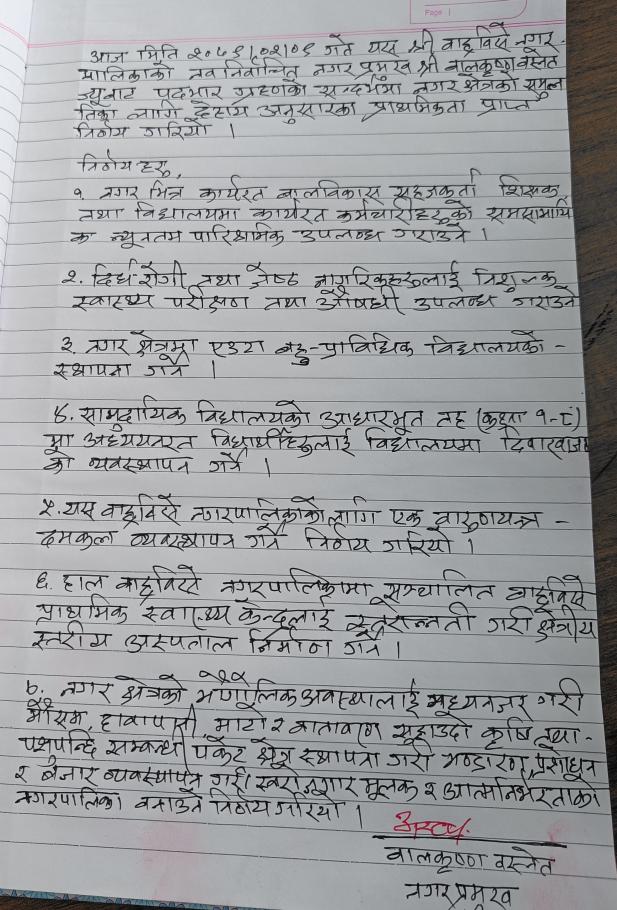 Page
आज मिति २०७९।०२।०९ गते यस श्री बाह्रविसे नगर-
पालिकाको नवनिर्वाचित नगर प्रमुख श्री बालकृष्ण बस्नेत
ज्यूबाट पदभार ग्रहणका सन्दर्भमा नगर क्षेत्रको समुन्न
तिका लागि देहाय अनुसारका प्राथमिकता प्राप्त
निर्णय गरियो ।
निर्णयहरु,
१. नगर भित्र कार्यरत बालविकास सहजकर्ता शिक्षक
तथा विद्यालयमा कार्यरत कर्मचारीहरुको समसामयि
क न्यूनतम पारिश्रमिक उपलब्ध गराउने ।
२. दिर्घ-रोगी तथा जेष्ठ नागरिकहरुलाई निशुल्क
स्वास्थ्य परीक्षण तथा औषधी उपलब्ध गराउने
३. नगर क्षेत्रमा एउटा बहु-प्राविधिक विद्यालयको -
स्थापना गर्ने ।
४. सामुदायिक विद्यालयको आधारभूत तह (कक्षा १-८)
मा अध्ययनरत विद्यार्थीहरुलाई विद्यालयमा दिवाखाजा
को व्यवस्थापन गर्ने ।
५. यस बाह्रविसे नगरपालिकाको लागि एक वारुणयन्त्र -
दमकल व्यवस्थापन गर्ने निर्णय गरियो ।
६. हाल बाह्रविसे नगरपालिकामा सञ्चालित बाह्रविसे
प्राथमिक स्वास्थ्य केन्द्रलाई स्तरोन्नती गरी क्षेत्रीय
स्तरीय अस्पताल निर्माण गर्ने ।
७. नगर क्षेत्रको भौगोलिक अवस्थालाई मध्यनजर गरी
मौसम, हावापानी माटो र वातावरण सुहाउदो कृषि तथा-
पशुपन्छि सम्बन्धी पकेट क्षेत्र स्थापना गरी भण्डारण, प्रशोधन
र बजार व्यवस्थापन गरी स्वरोजगार मूलक र आत्मनिर्भरताको
नगरपालिका बनाउने निर्णय गरियो ।
बालकृष्ण बस्नेत
नगर प्रमुख